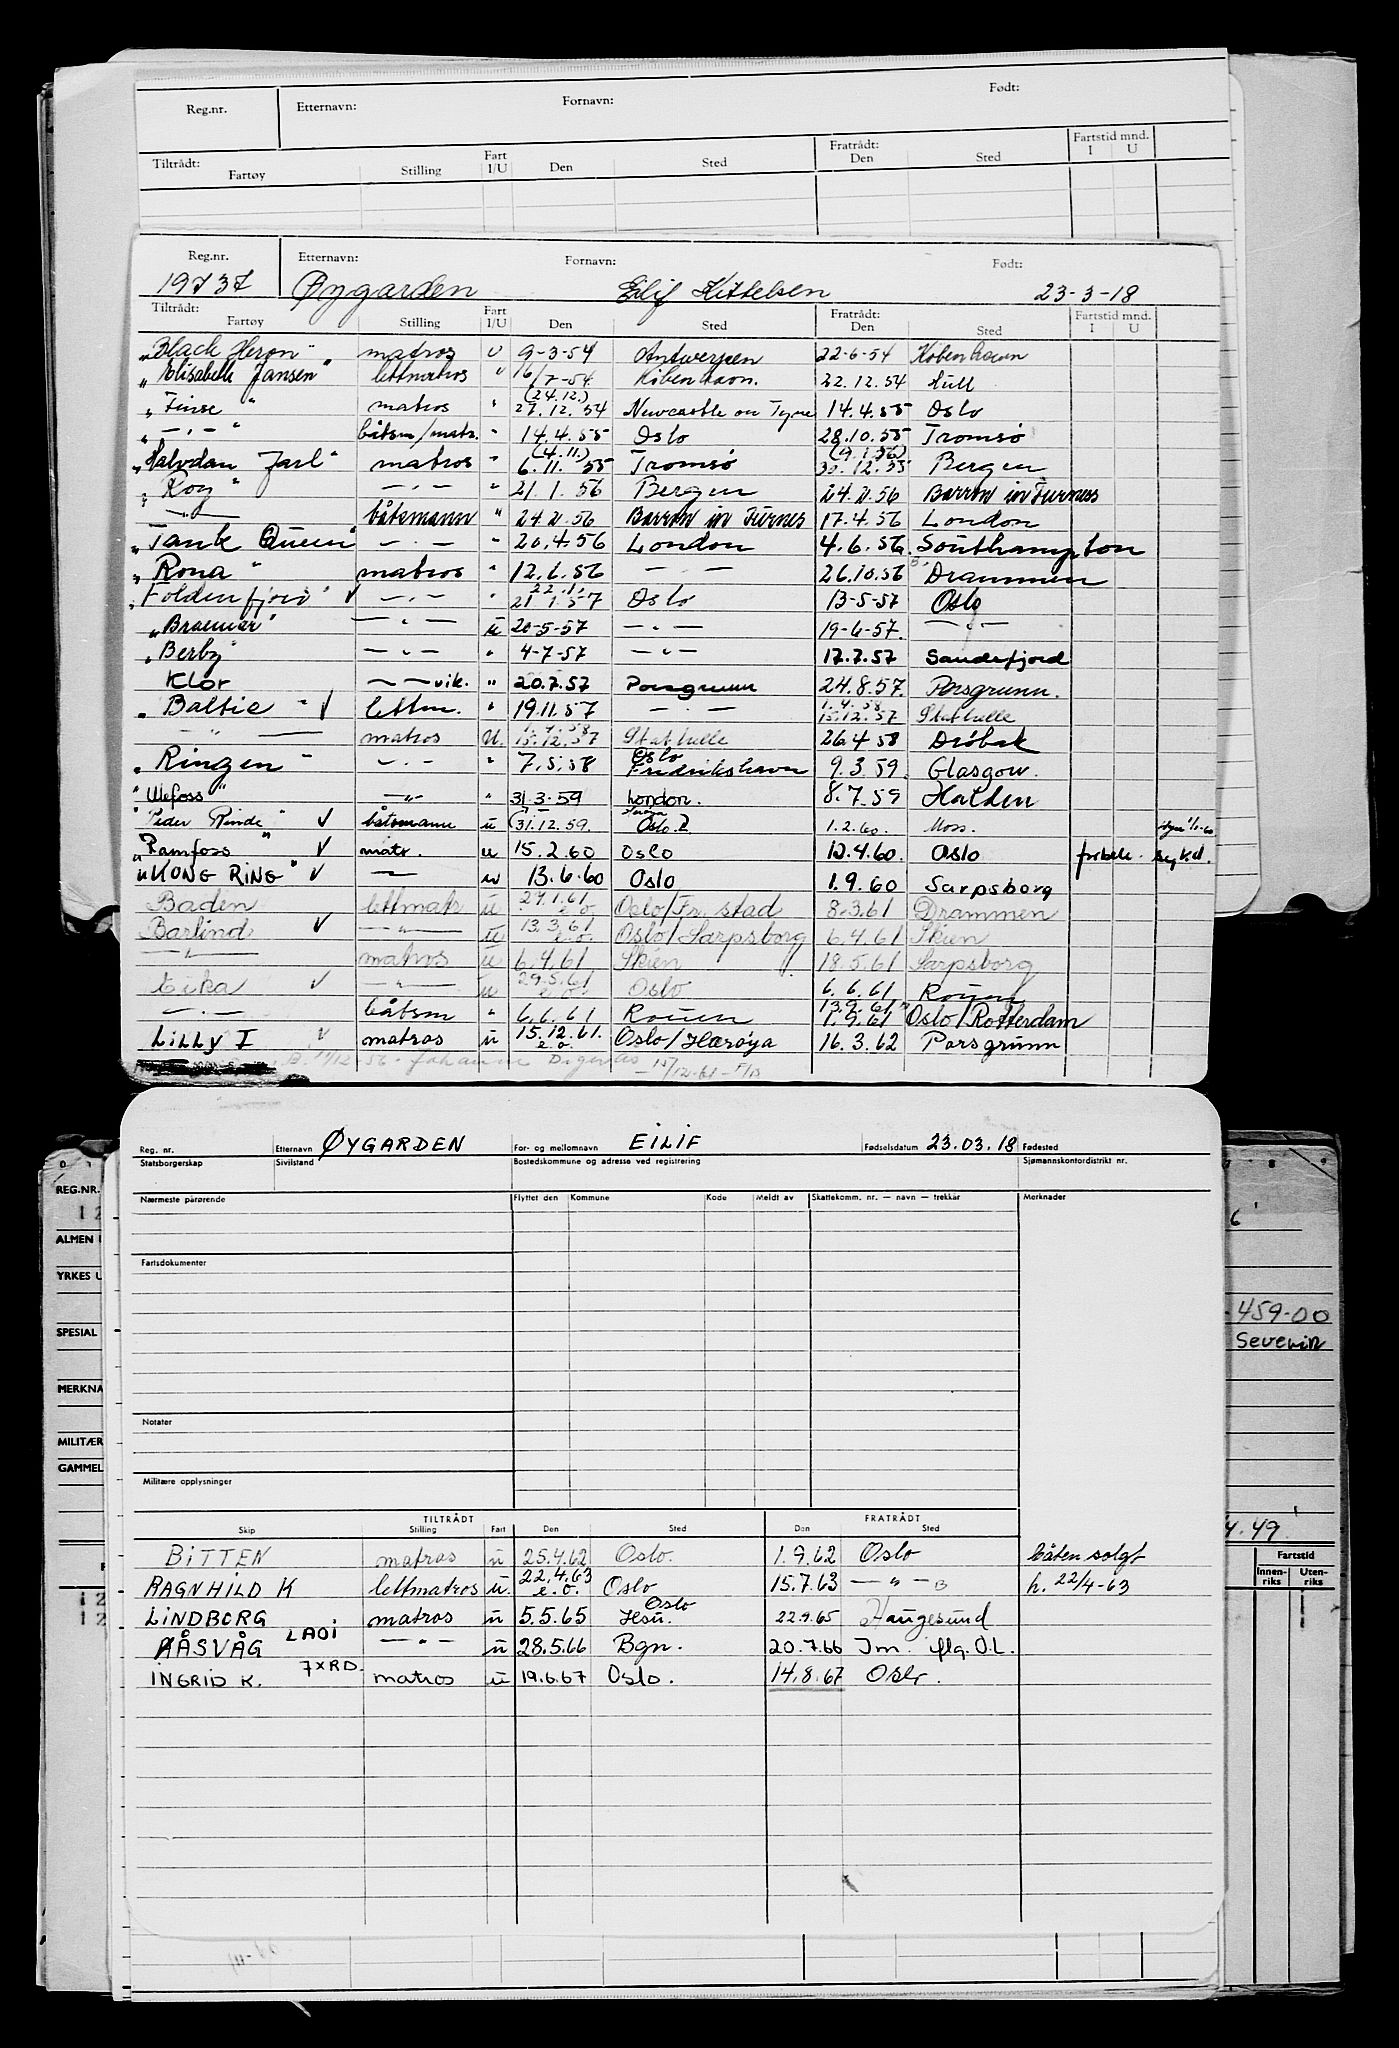 Reg.nr. Etternavn: Fornavn: Født:
Tiltrådt: Fart Fratrådt: Fartstid mnd.
Fartøy Stilling I/U Den Sted Den Sted I U
Reg.nr. Etternavn: Fornavn: Født:
19737 Øygarden Eilif Kittelsen 23-3-18
Tiltrådt: Fart Fratrådt: Fartstid mnd.
Fartøy Stilling I/U Den Sted Den Sted I U
"Black Heron" matros U 9-3-54 Antwerpen 22-6-54 København
"Elisabeth Jansen" lettmatros " 16/7-54 København. 22.12.54 Hull
"Finse" matros " (24.12.) 27.12.54 Newcastle on Tyne 14.4.55 Oslo
" — " — " båtsm/matr. " 14.4.55 Oslo 28.10.55 Tromsø
"Halvdan Jarl" matros " (4.11.) 6.11.55 Tromsø (9.1.56) 30.12.55 Bergen
"Roy" — " — " 21.1.56 Bergen 24.2.56 Barrow in Furness
— " — båtsmann " 24.2.56 Barrow in Furness 17.4.56 London
"Tank Queen" — " — " 20.4.56 London 4.6.56 Southampton
"Rona" matros " 12.6.56 — — 26.10.56 Drammen
"Foldenfjord" ✓ — " — " 22.1. 21.1.57 Oslo 13-5-57 Oslo
"Braemar" — " — u 20-5-57 — " — 19-6-57. — " —
"Berby" — " — " 4-7-57 — " — 17.7.57 Sandefjord
Klor — — vik. " 20.7.57 Porsgrunn 24.8.57. Porsgrunn.
"Baltic" ✓ lettm. " 19.11.57 — " — 1.4.58 15.12.57 Stathelle
— " — matros U. 1.4.58 15.12.57 Stathelle 26.4.58 Drøbak
"Ringen" — " — " 7.5.58 Oslo Fredrikshavn 9.3.59. Glasgow.
"Ulefoss" — " — " 31.3.59 London. 8.7.59 Halden
"Peder Rinde" ✓ båtsmann u (31.12.59. Herøya Oslo.) 1.2.60. Moss.
"Ramfoss" ✓ matr. u 15.2.60 Oslo 12.4.60. Oslo
"KONG RING" ✓ — " — u 13.6.60 Oslo 1.9.60 Sarpsborg
Baden lettmatr u 27.1.61 e.o. Oslo/Fr.stad 8.3.61 Drammen
Barlind ✓ — " — u 13.3.61 e.o. Oslo/Sarpsborg 6.4.61 Skien
— " — matros u 6.4.61 Skien 18.5.61 Sarpsborg
Eika ✓ — " — u 29.5.61 e.o. Oslo 6.6.61 Rouen
— " — båtsm " 6.6.61 Rouen 13.9.61 1.9.61 Oslo/Rotterdam
LILLY I ✓ matros u 15.12.61. e.o. Oslo/Herøya 16.3.62 Porsgrunn
Reg. nr. Etternavn ØYGARDEN For- og mellomnavn EILIF Fødselsdatum 23.03.18 Fødested
Statsborgerskap Sivilstand Bostedskommune og adresse ved registrering Sjømannskontordistrikt nr.
Nærmeste pårørende Flyttet den Kommune Kode Meldt av Skattekomm. nr. — navn — trekkår Merknader
Fartsdokumenter
Notater
Militære opplysninger
TILTRÅDT FRATRÅDT
Skip Stilling Fart Den Sted Den Sted
BITTEN matros u 25.4.62 Oslo. 1.9.62 Oslo båten solgt
RAGNHILD K lettmatros u. 22.4.63 e.o. Oslo 15.7.63 — " — B h. 22/4-63
LINDBORG matros u 5.5.65 Oslo Hsu. 22.9.65 Haugesund
ÅSVÅG LAOI — " — u 28.5.66 Bgn. 20.7.66 Im. flg. O.L.
INGRID K. 7XRD. matros u 19.6.67 Oslo. 14.8.67 Oslo.
REG.NR.
12
ALMEN
YRKES U
SPESIAL
MERKNA
MILITÆR
GAMMEL
459-00
Severin
4.49
Fartstid
Innenriks Utenriks